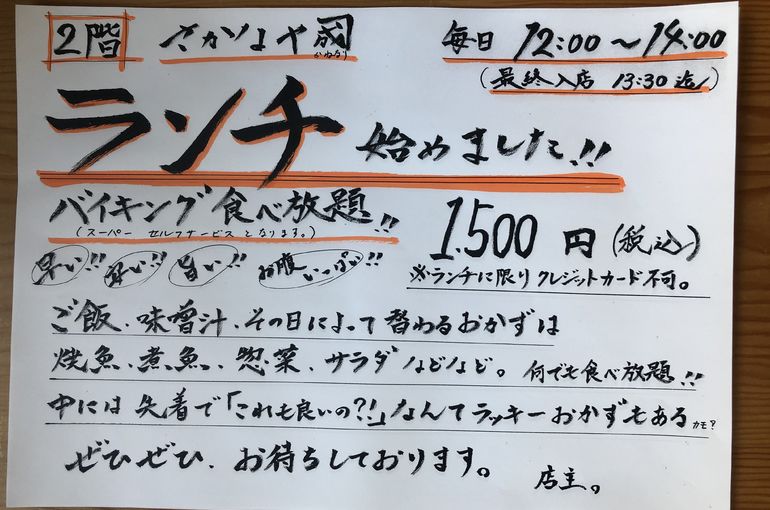 2階
毎日 12:00〜14:00
(最終入店 13:30迄)
ランチ 始めました!!
バイキング食べ放題!!
(スーパー セルフサービスとなります。)
1.500円(税込)
早い!! 旨い!! お腹いっぱい!!
※ランチに限りクレジットカード不可。
ご飯、味噌汁、その日によって替わるおかずは
焼魚、煮魚、惣菜、サラダなどなど。何でも食べ放題!!
中には先着で「これも良いの?!」なんてラッキーおかずもあるカモ?
ぜひぜひ、お待ちしております。
店主。